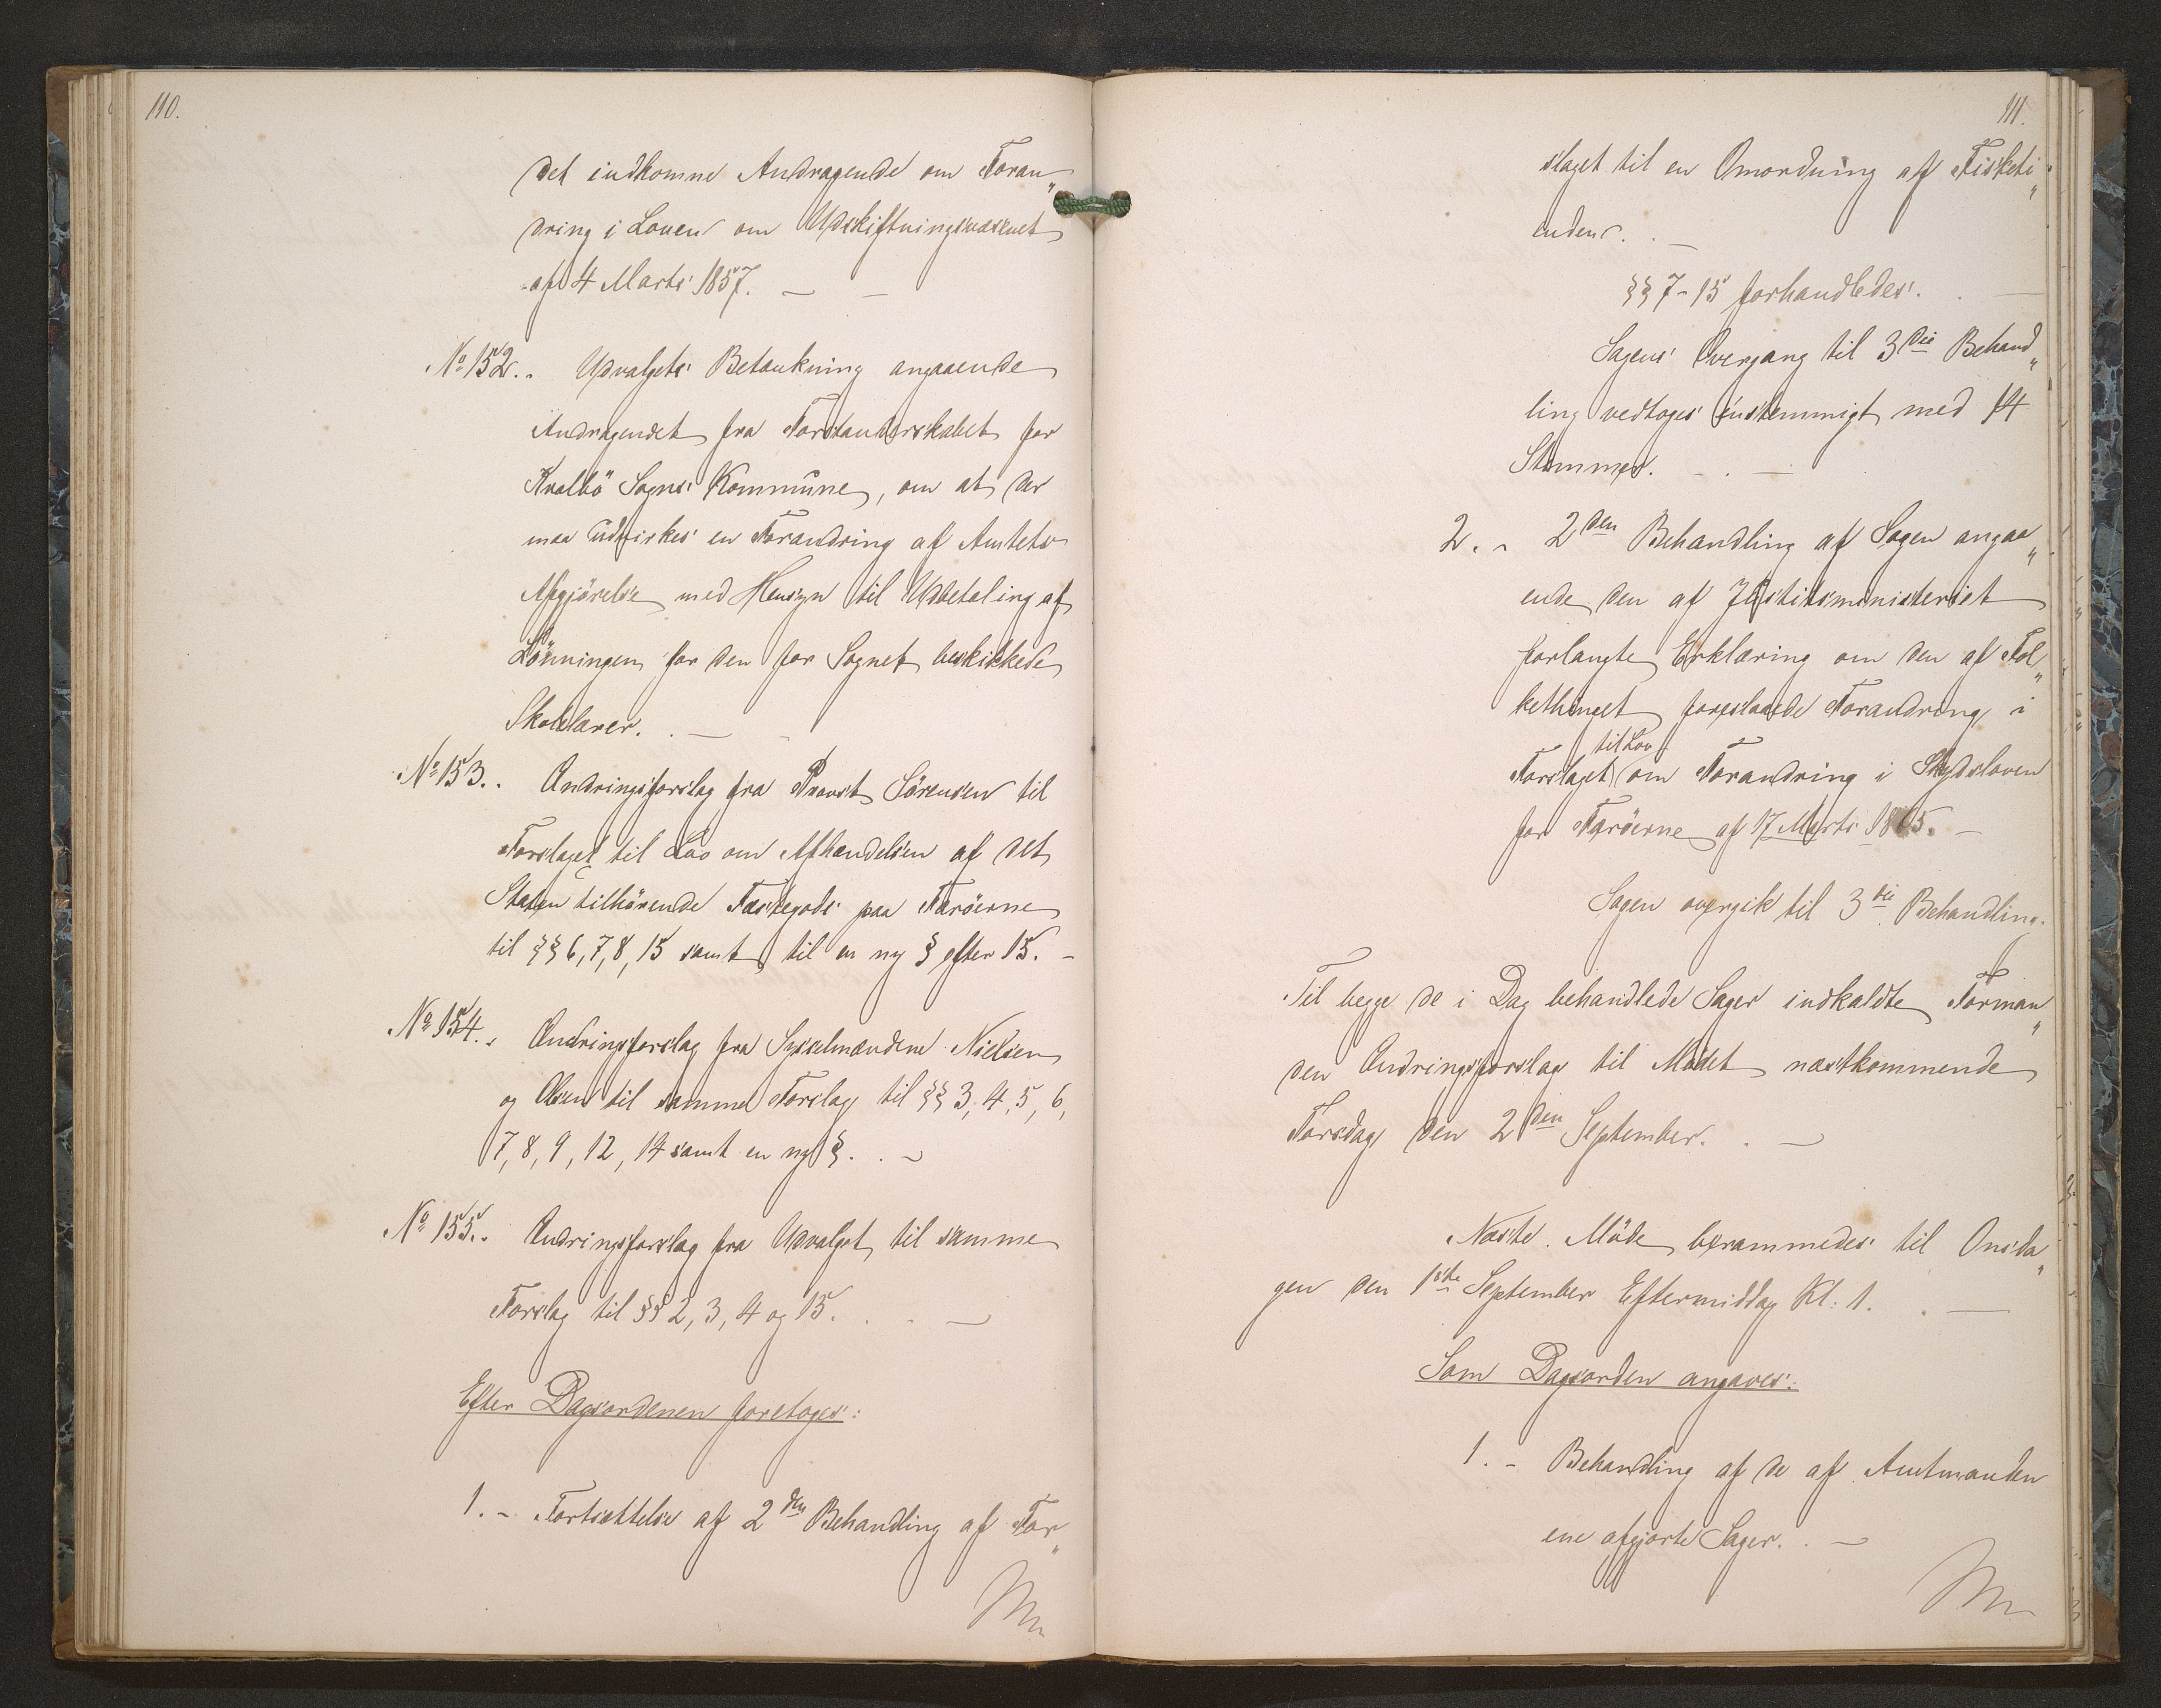 110.
det indkomne Andragende om Foran„
dring i Loven om Udskiftningsvæsenet
af 4 Marts 1857. —
No 152.. Udvalgets Betænkning angaaende
Andragendet fra Forstanderskabet for
Kvalbö Sogns Kommune, om at der
maa udvirkes en Forandring af Amtets
Afgjörelse med Hensyn til Udbetaling af
Lönningen for den for Sognet beskikkede
Skolelærer. . —
No 153.. Ændringsforslag fra Provst Sörensen til
Forslaget til Lov om Afhændelsen af det
Staten tilhörende Fæstegods paa Færöerne
til §§ 6, 7, 8, 15 samt til en ny § efter 15. -
No 154.. Ændringsforslag fra Sysselmændene Nielsen
og Olsen til samme Forslag til §§ 3, 4, 5, 6,
7, 8, 9, 12, 14 samt en ny §. . -
No 155.. Ændringsforslag fra Udvalget til samme
Forslag til §§ 2, 3, 4 og 15. . . —
Efter Dagsordenen foretoges:
1. - Fortsættelse af 2den Behandling af For„
111.
slaget til en Omordning af Fisketi„
enden. . —
§§ 7-15 forhandledes. . —
Sagens Overgang til 3die Behand„
ling vedtoges enstemmigt med 14
Stemmer. - . —
2. - 2den Behandling af Sagen angaa„
ende den af Justitsministeriet
forlangte Erklæring om den af Fol„
kethinget foreslaaede Forandring i
til Lov
Forslaget om Forandring i Skydsloven
for Færöerne af 17 Marts 1865. -
Sagen overgik til 3die Behandling.
Til begge de i Dag behandlede Sager indkaldte Forman„
den Ændringsforslag til Mödet næstkommende
Torsdag den 2den September. . —
Næste Möde berammedes til Onsda„
gen den 1ste September Eftermiddag Kl: 1. . —
Som Dagsorden angaves:
1. - Behandling af de af Amtmanden
ene afgjorte Sager. . —